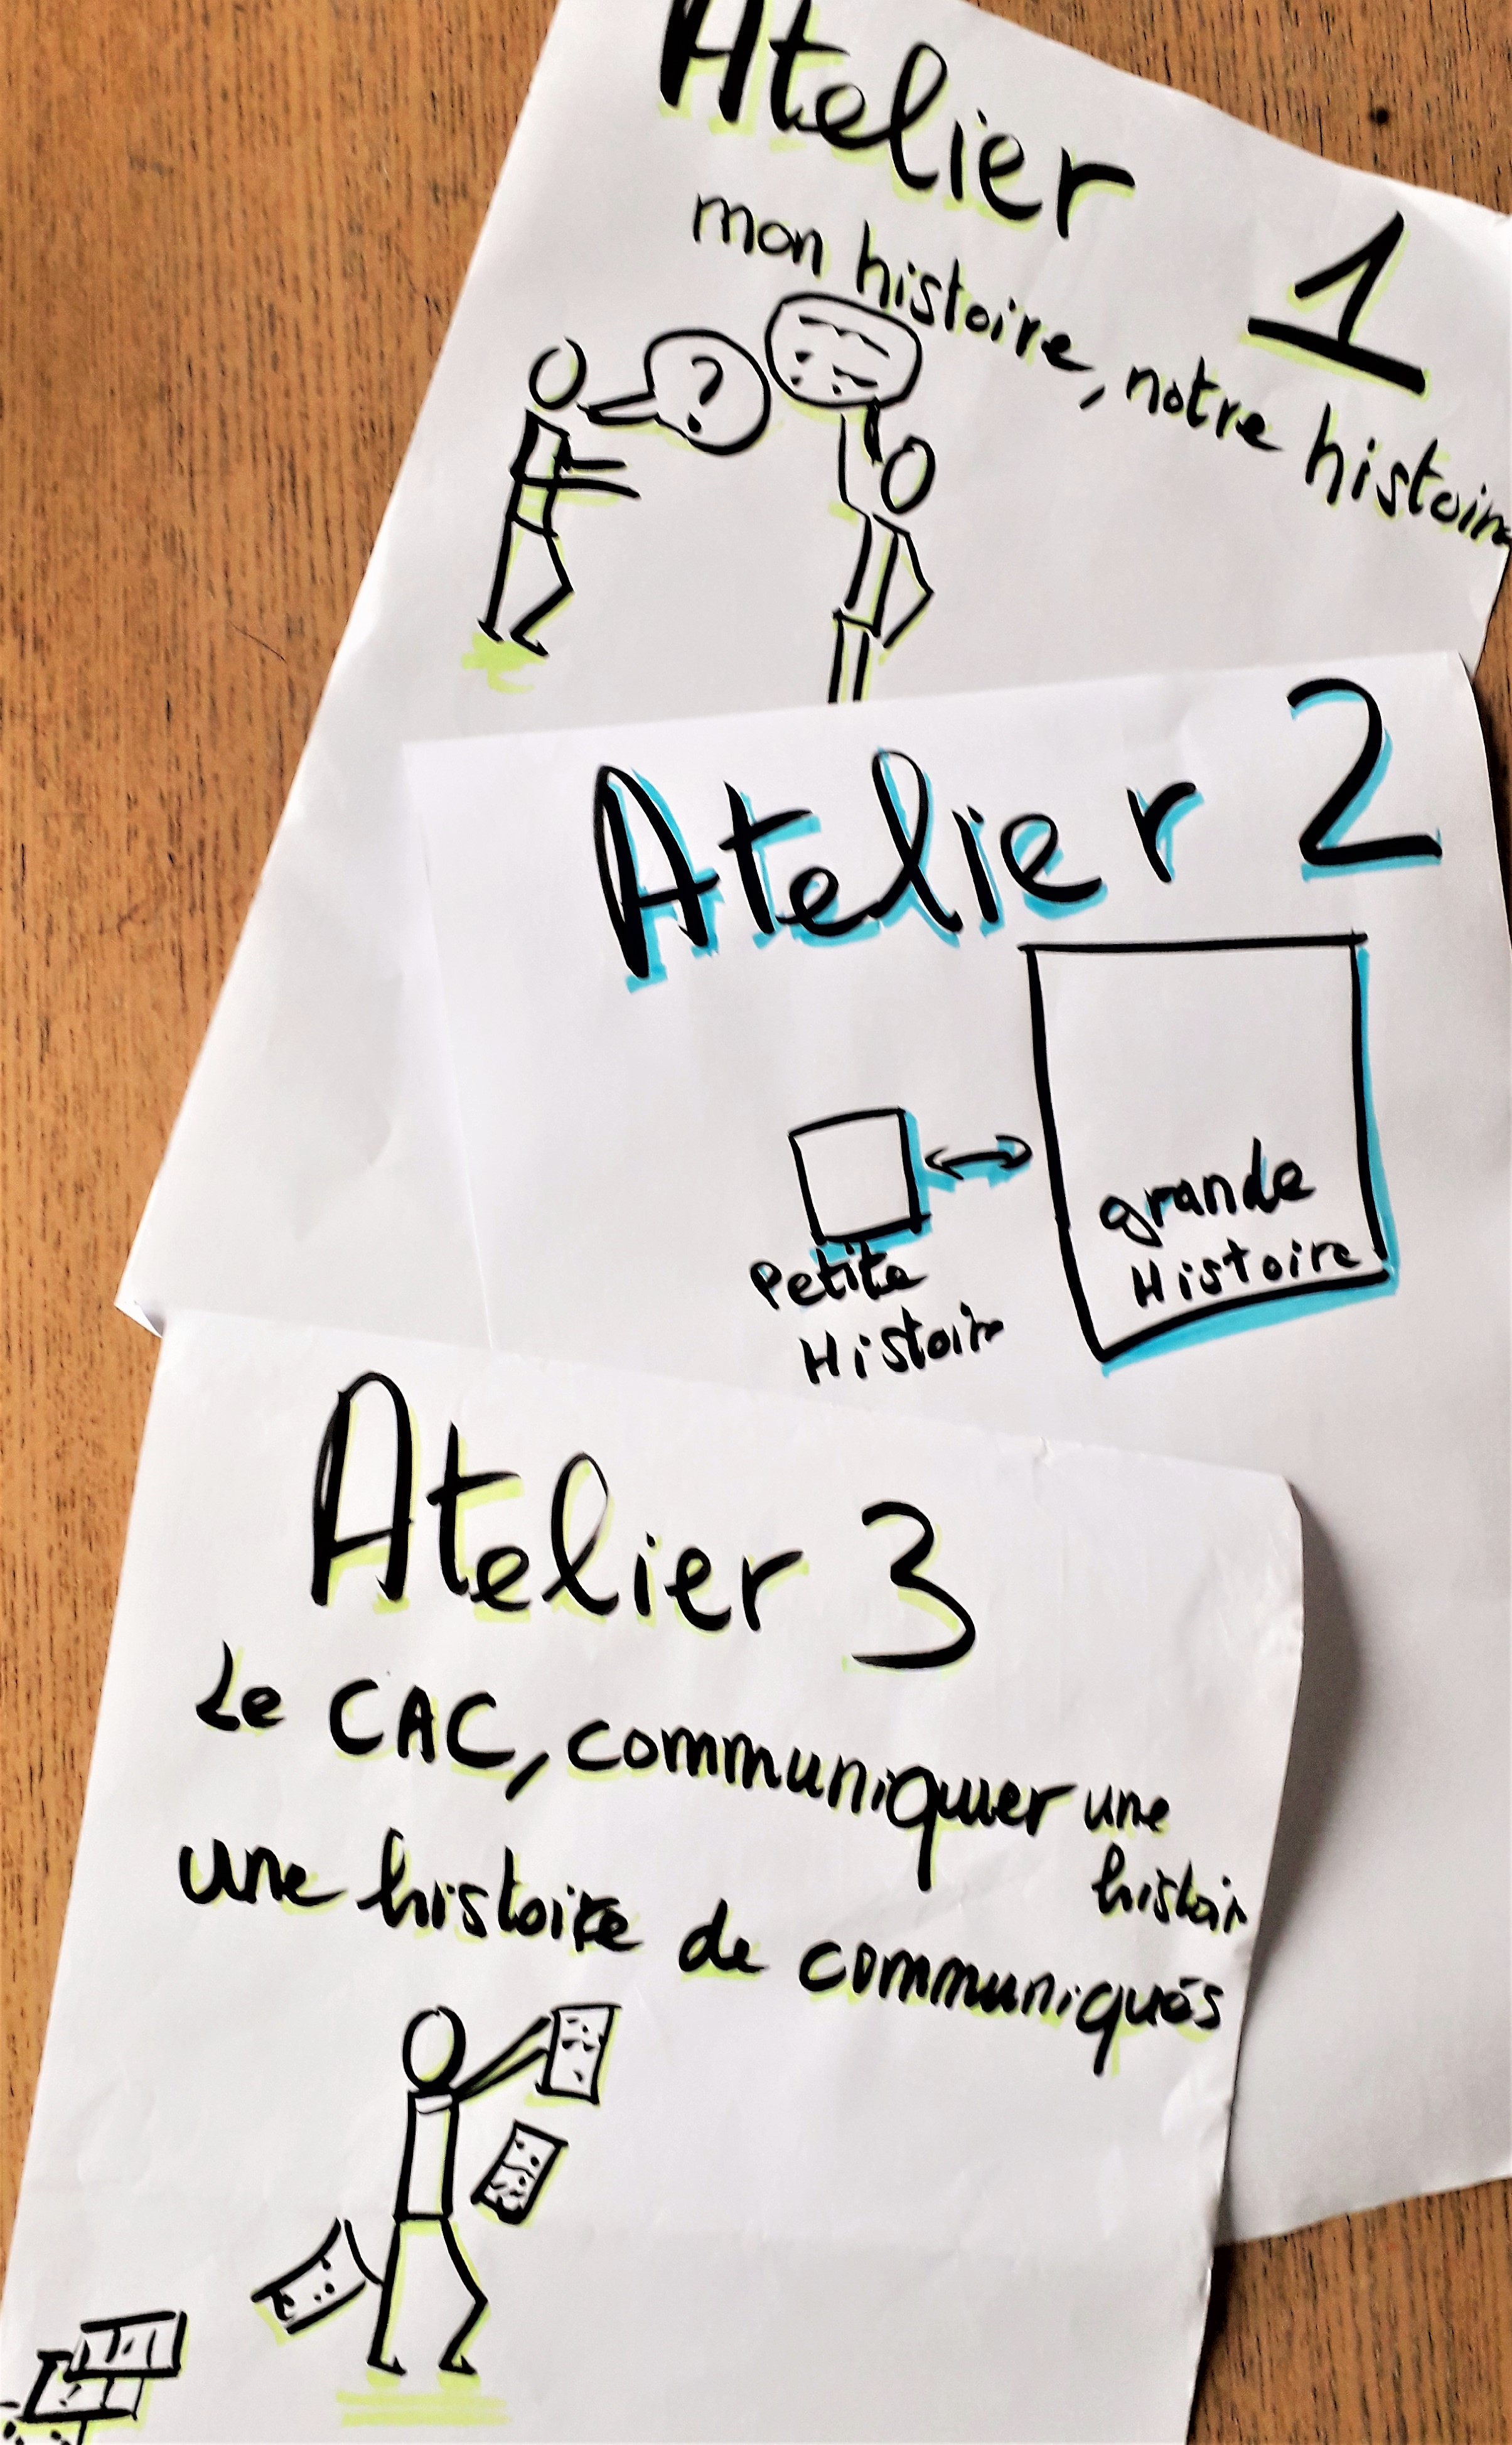 Atelier 1
mon histoire, notre histoire
?
Atelier 2
Petite
Histoire
grande
Histoire
Atelier 3
Le CAC, communiquer une
histoir
une histoire de communiqués